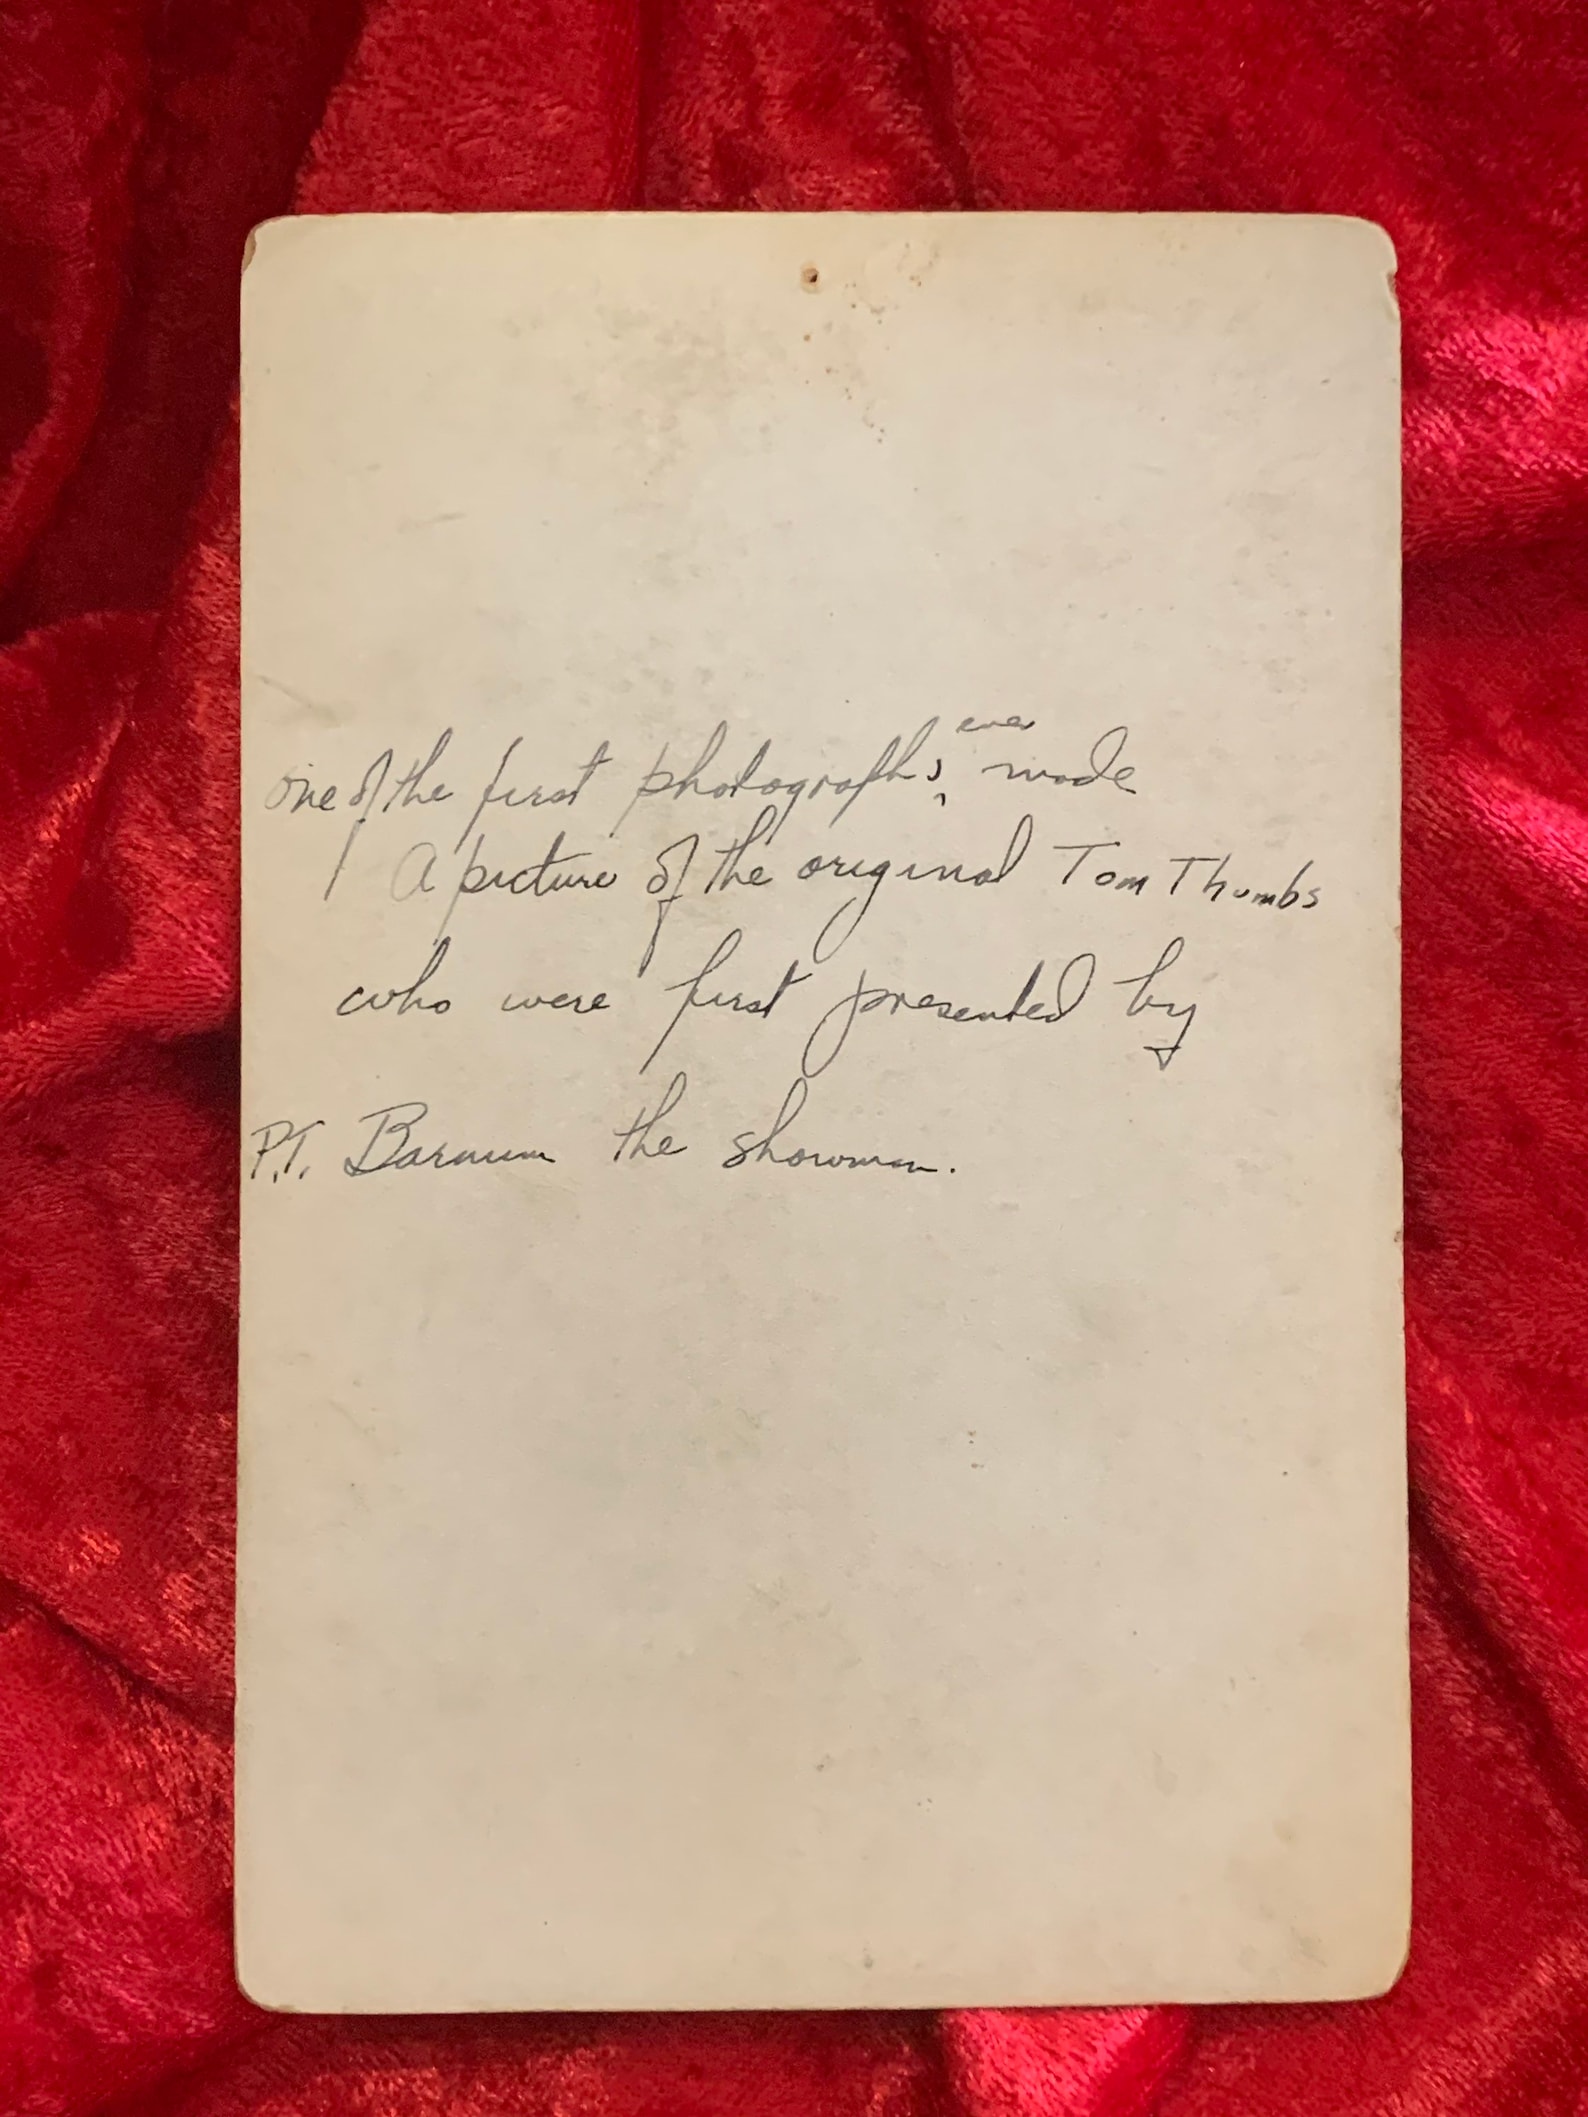 one of the first photographs ever made
A picture of the original Tom Thumbs
who were first presented by
P.T. Barnum the showman.